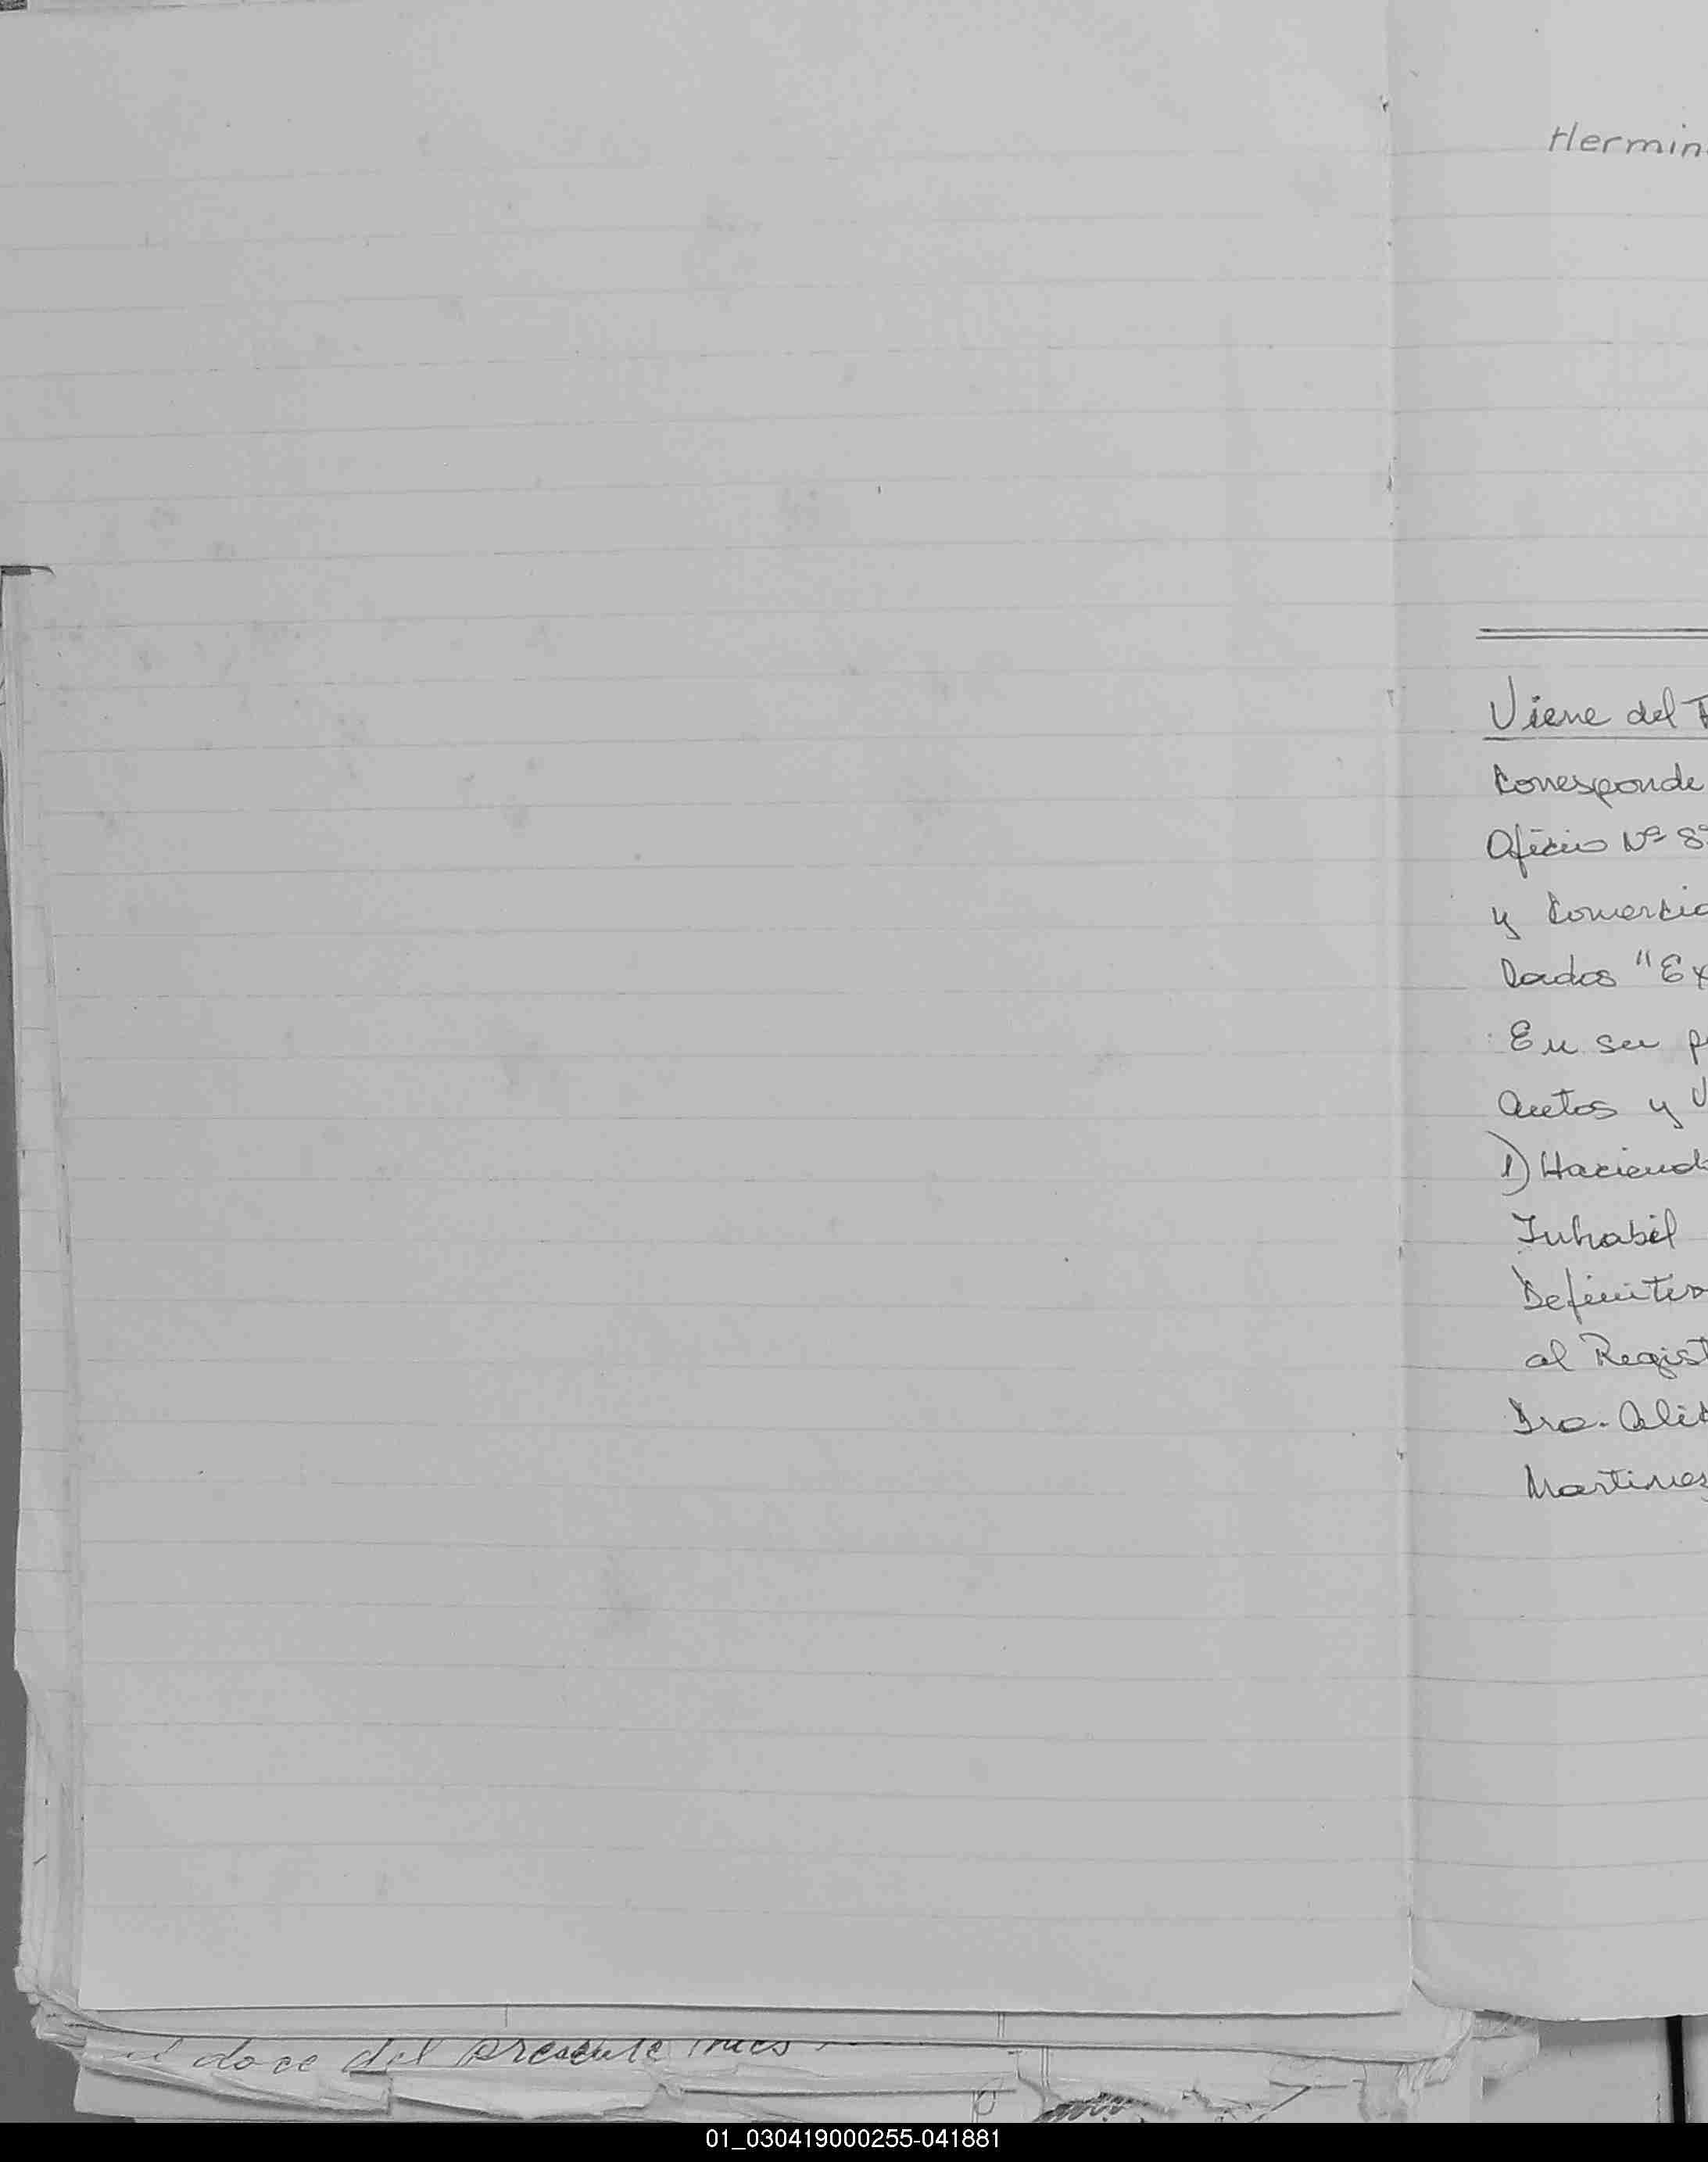 Hermin
Viene del F
Corresponde
Oficio Nº 8
y Comercia
lados "Ex
En su p
Autos y V
1) Haciend
Inhabil
Definitiv
al Regist
Dra. Alic
Martinez
el doce del presente mes
01_030419000255-041881